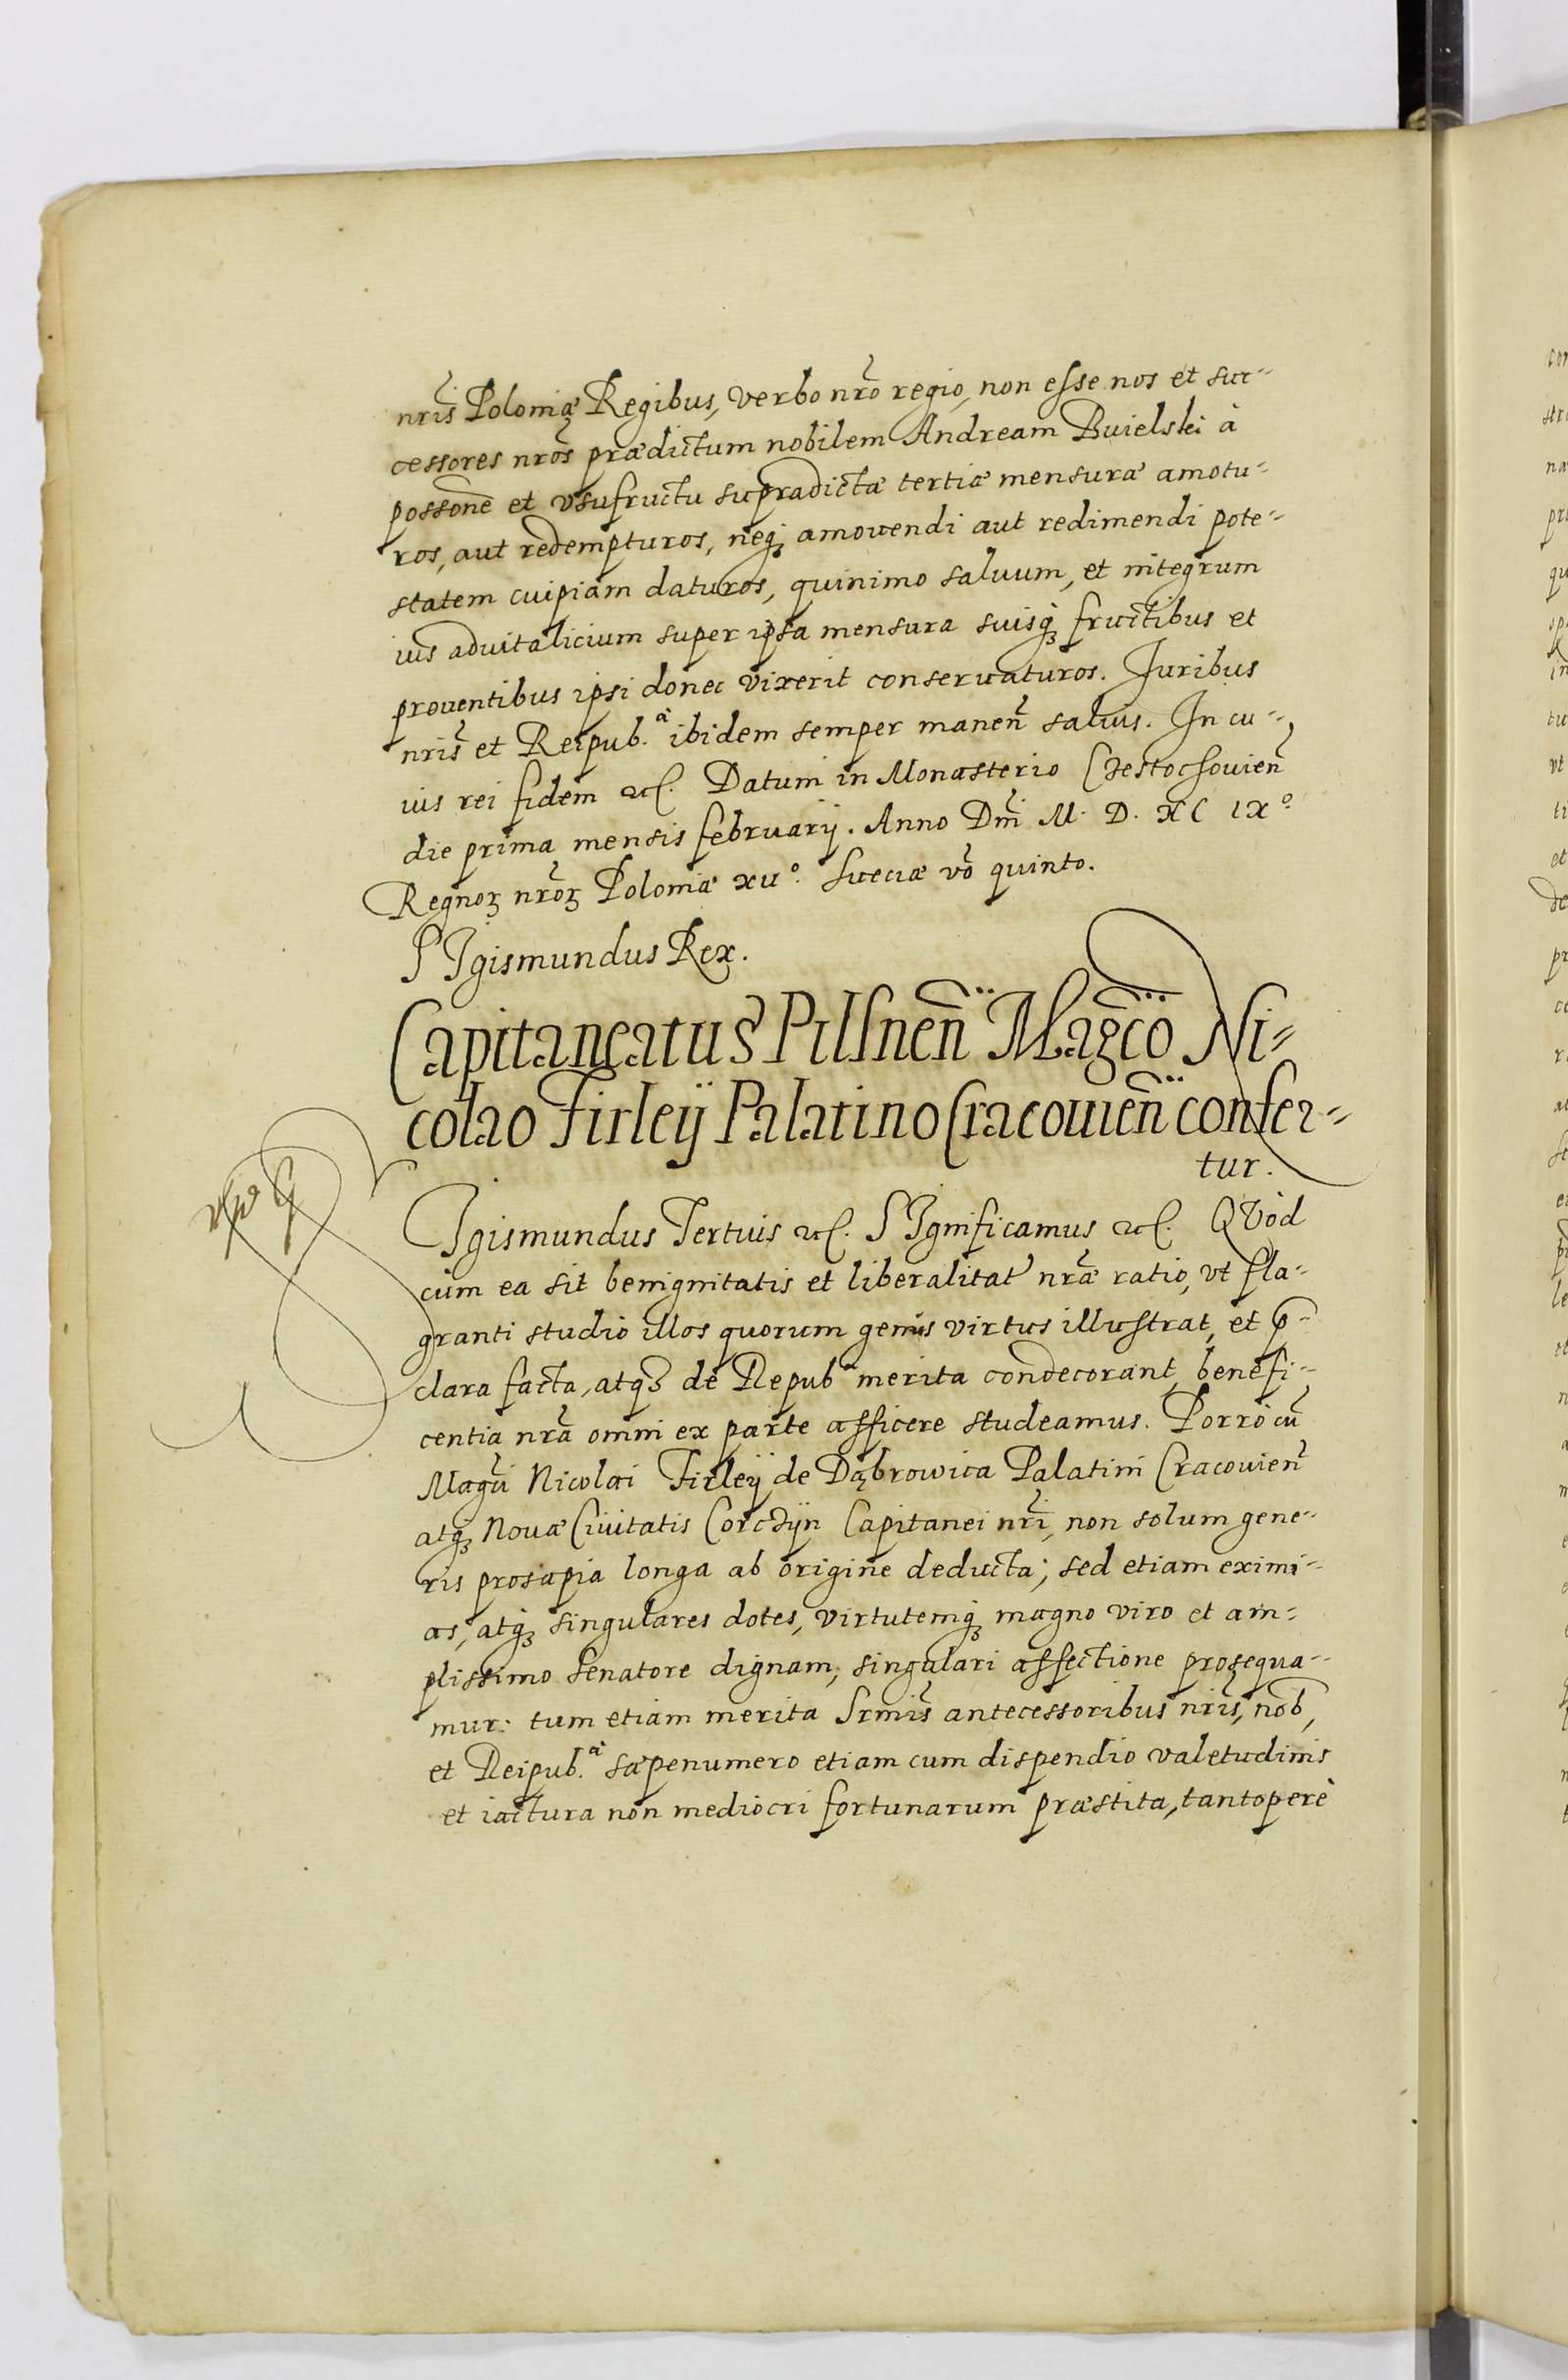 nr̃is Poloniæ Regibus, verbo nr̃o regio, non esse nos et suc-
cessores nr̃os prædictum nobilem Andream Buielski à
possone͂ et vsufructu supradictæ tertiæ mensuræ amotu-
ros, aut redempturos, neq; amouendi aut redimendi pote-
statem cuipiam daturos, quinimo saluum, et integrum
ius aduitalicium super ipsa mensura suisq; fructibus et
prouentibus ipsi donec vixerit conseruaturos. Juribus
nr̃is et Reipub.ᵃᵉ ibidem semper manen̄ saluis. In cu-
ius rei fidem etc. Datum in Monasterio Czestochouien̄
die prima mensis february. Anno Dn̄i M. D. XC IXº
Regnoꝝ nr̃oꝝ Poloniæ xuº. Sueciæ vō quinto.
SIgismundus Rex.
Capitaneatus Pilsnen̄ Magc̄o Ni-
colao Firleÿ Palatino Cracouien̄ confer-
tur.
SIgismundus Tertius etc. SIgnificamus etc. QVòd
cùm ea sit benignitatis et liberalitat̄ nr̃æ ratio, vt fla-
granti studio illos quorum genus virtus illustrat, et p̄-
clara facta, atq; de Repub merita condecorant, benefi-
centia nr̃a omni ex parte afficere studeamus. Porrò cū
Magc̄i Nicolai Firleÿ de Dąbrowica Palatini Cracouien̄
atq; Nouæ Ciuitatis Corczÿn Capitanei nr̃i, non solum gene-
ris prosapia longa ab origine deducta; sed etiam eximi-
as, atq; singulares dotes, virtutemq; magno viro et am-
plissimo Senatore dignam, singulari affectione prosequa-
mur: tum etiam merita Srm̄is antecessoribus nr̃is, nob̄,
et Reipub.ᵃᵉ sæpenumero etiam cum dispendio valetudinis
et iactura non mediocri fortunarum præstita, tantoperè